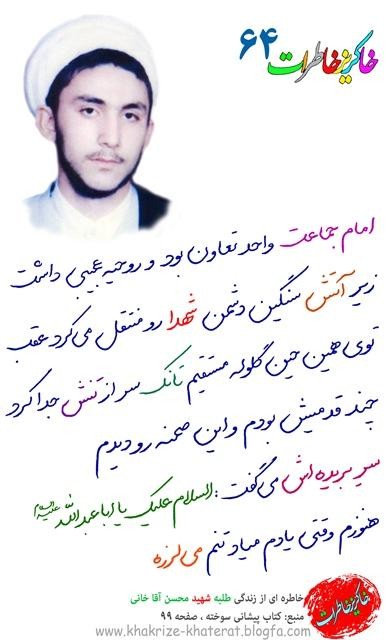 خاکریز خاطرات ۶۴
امام جماعت واحد تعاون بود و روحیه عجیبی داشت
زیر آتش سنگین دشمن شهدا رو منتقل می‌کرد عقب
توی همین حین گلوله مستقیم تانک سر از تنش جدا کرد
چند قدمیش بودم و این صحنه رو دیدم
سر بریده‌اش می‌گفت: السلام علیک یا اباعبدالله علیه السلام
هنوزم وقتی یادم میاد تنم می‌لرزه
خاطره ای از زندگی طلبه شهید محسن آقا خانی
منبع: کتاب پیشانی سوخته ، صفحه ۹۹
www.khakrize-khaterat.blogfa.com
خاکریز خاطرات